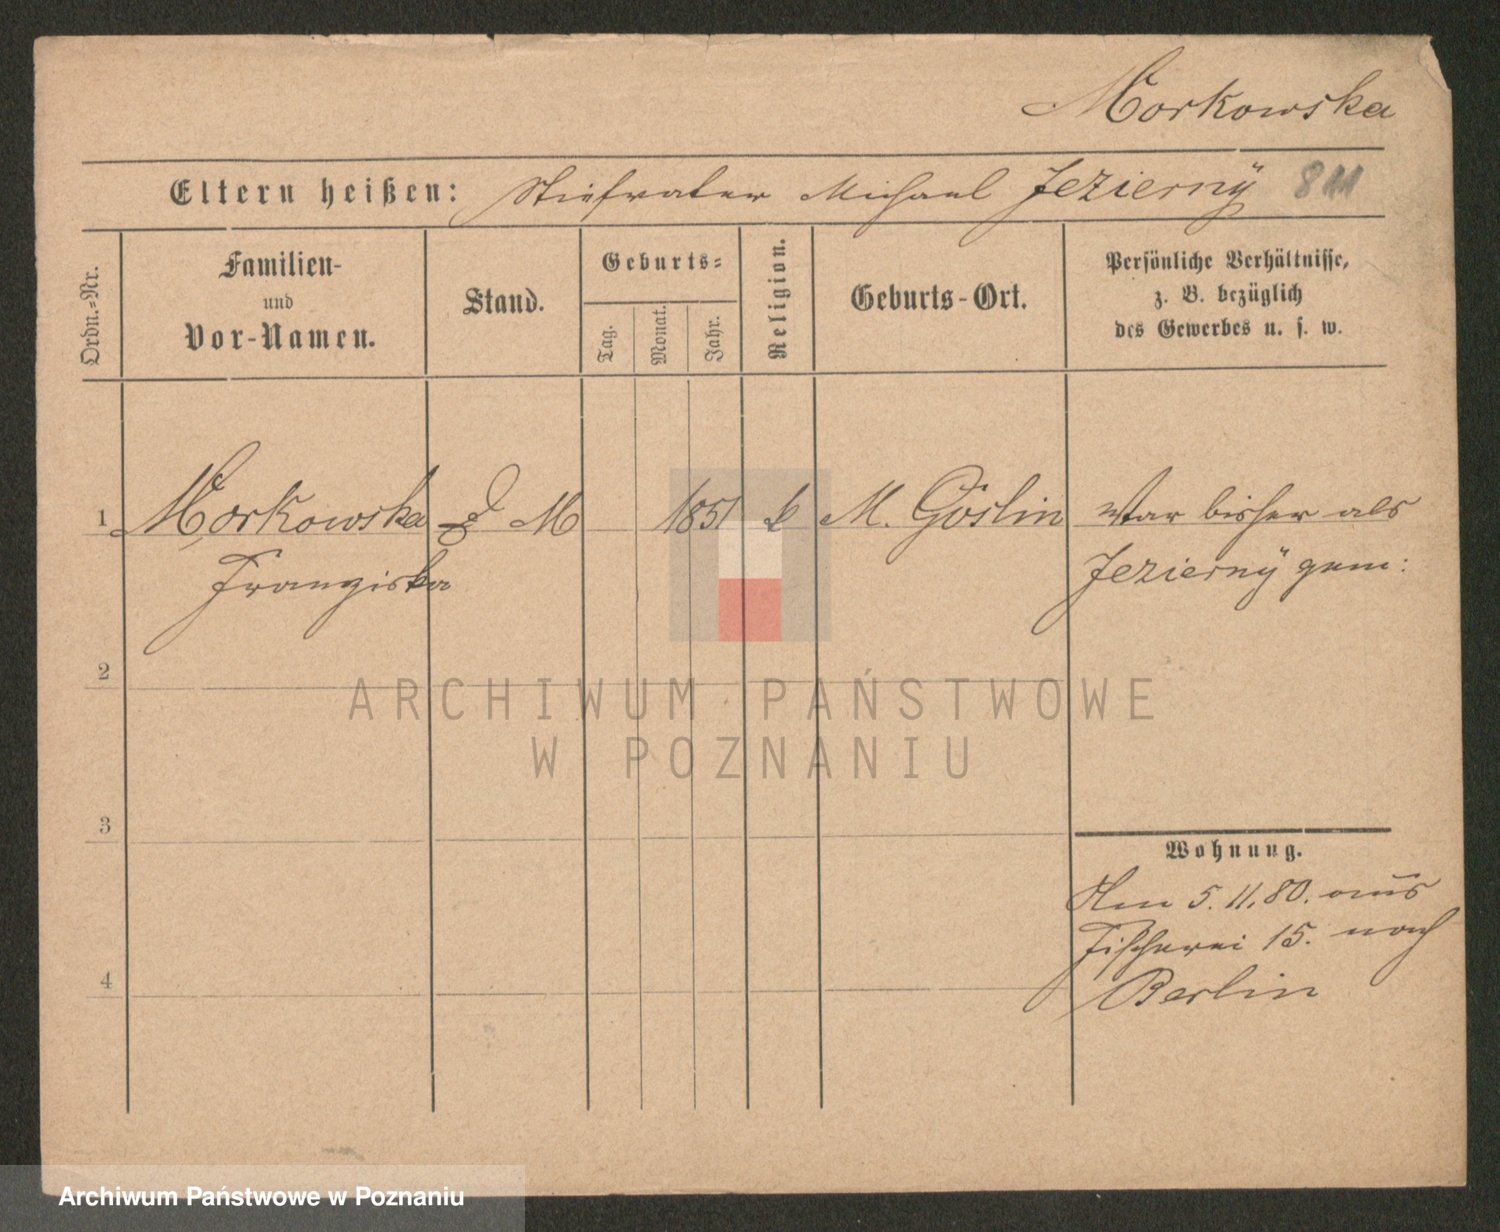 Morkowska
Eltern heißen: Stiefvater Michael Jezierný 811
Ordn.-Nr.
Familien-
und
Vor-Namen.
Stand.
Geburts-
Tag.
Monat.
Jahr.
Religion.
Geburts-Ort.
Persönliche Verhältnisse,
z. B. bezüglich
des Gewerbes u. s. w.
1 Morkowska M 1851 k M. Goslin War bisher als
Franziska Jezierný gem:
2
ARCHIWUM PAŃSTWOWE
W POZNANIU
3
Wohnung.
Am 5.11.80. aus
Fischerei 15. nach
4 Berlin
Archiwum Państwowe w Poznaniu